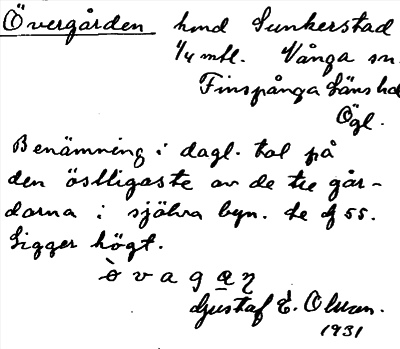 Övergården hmd Sunkerstad
1/4 mtl. Vånga sn.
Finspånga Läns hd
Ögl.
Benämning i dagl. tal på
den östligaste av de tre går-
darna i själva byn. de
Ligger högt.
òvagaŋ
Gustaf E. Olsson.
1931